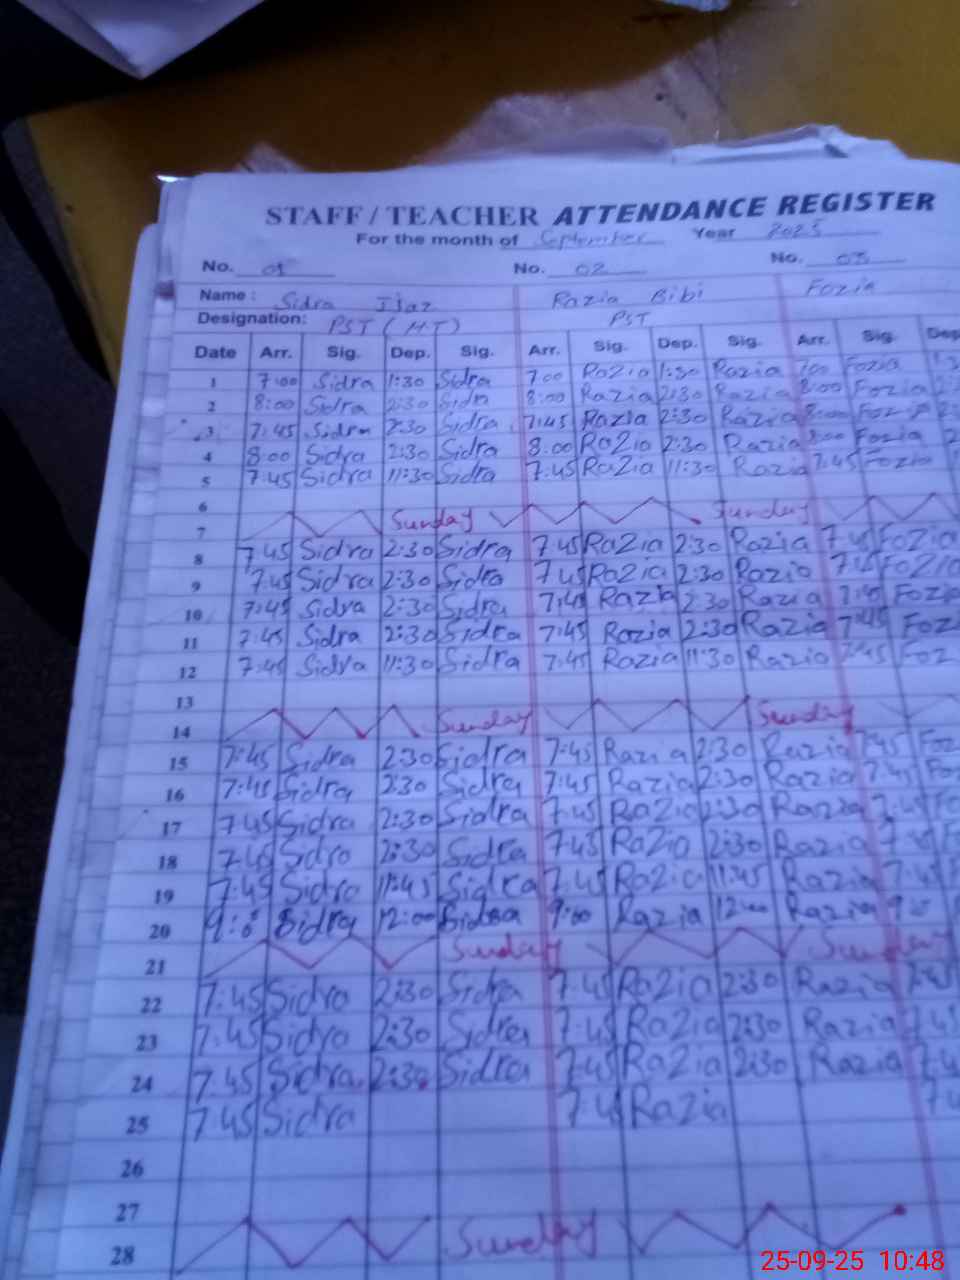 STAFF / TEACHER ATTENDANCE REGISTER
For the month of September Year 2025
No. 01 No. 02 No. 03
Name : Sidra Ijaz Razia Bibi Fozia
Designation: PST (HT) PST
Date Arr. Sig. Dep. Sig. Arr. Sig. Dep. Sig. Arr. Sig. Dep
1 7:00 Sidra 1:30 Sidra 7:00 Razia 1:30 Razia 7:00 Fozia
2 8:00 Sidra 2:30 Sidra 8:00 Razia 2:30 Razia 8:00 Fozia
3 7:45 Sidra 2:30 Sidra 7:45 Razia 2:30 Razia 8:00 Fozia
4 8:00 Sidra 2:30 Sidra 8:00 Razia 2:30 Razia 8:00 Fozia
5 7:45 Sidra 11:30 Sidra 7:45 Razia 11:30 Razia 7:45 Fozia
6
7 Sunday Sunday
8 7:45 Sidra 2:30 Sidra 7:45 Razia 2:30 Razia 7:45 Fozia
9 7:45 Sidra 2:30 Sidra 7:45 Razia 2:30 Razia 7:45 Fozia
10 7:45 Sidra 2:30 Sidra 7:45 Razia 2:30 Razia 7:45 Fozia
11 7:45 Sidra 2:30 Sidra 7:45 Razia 2:30 Razia 7:45 Fozi
12 7:45 Sidra 11:30 Sidra 7:45 Razia 11:30 Razia 7:45 Foz
13
14 Sunday Sunday
15 7:45 Sidra 2:30 Sidra 7:45 Razia 2:30 Razia 7:45 Foz
16 7:45 Sidra 2:30 Sidra 7:45 Razia 2:30 Razia 7:45 Fo
17 7:45 Sidra 2:30 Sidra 7:45 Razia 2:30 Razia 7:45 Fo
18 7:45 Sidra 2:30 Sidra 7:45 Razia 2:30 Razia 7:45 F
19 7:45 Sidra 11:45 Sidra 7:45 Razia 11:45 Razia 7:45 F
20 9:00 Sidra 12:00 Sidra 9:00 Razia 12:00 Razia
21 Sunday Sunday
22 7:45 Sidra 2:30 Sidra 7:45 Razia 2:30 Razia 7:45
23 7:45 Sidra 2:30 Sidra 7:45 Razia 2:30 Razia 7:45
24 7:45 Sidra 2:30 Sidra 7:45 Razia 2:30 Razia 7:4
25 7:45 Sidra 7:45 Razia 7:4
26
27
28 Sunday
25-09-25 10:48